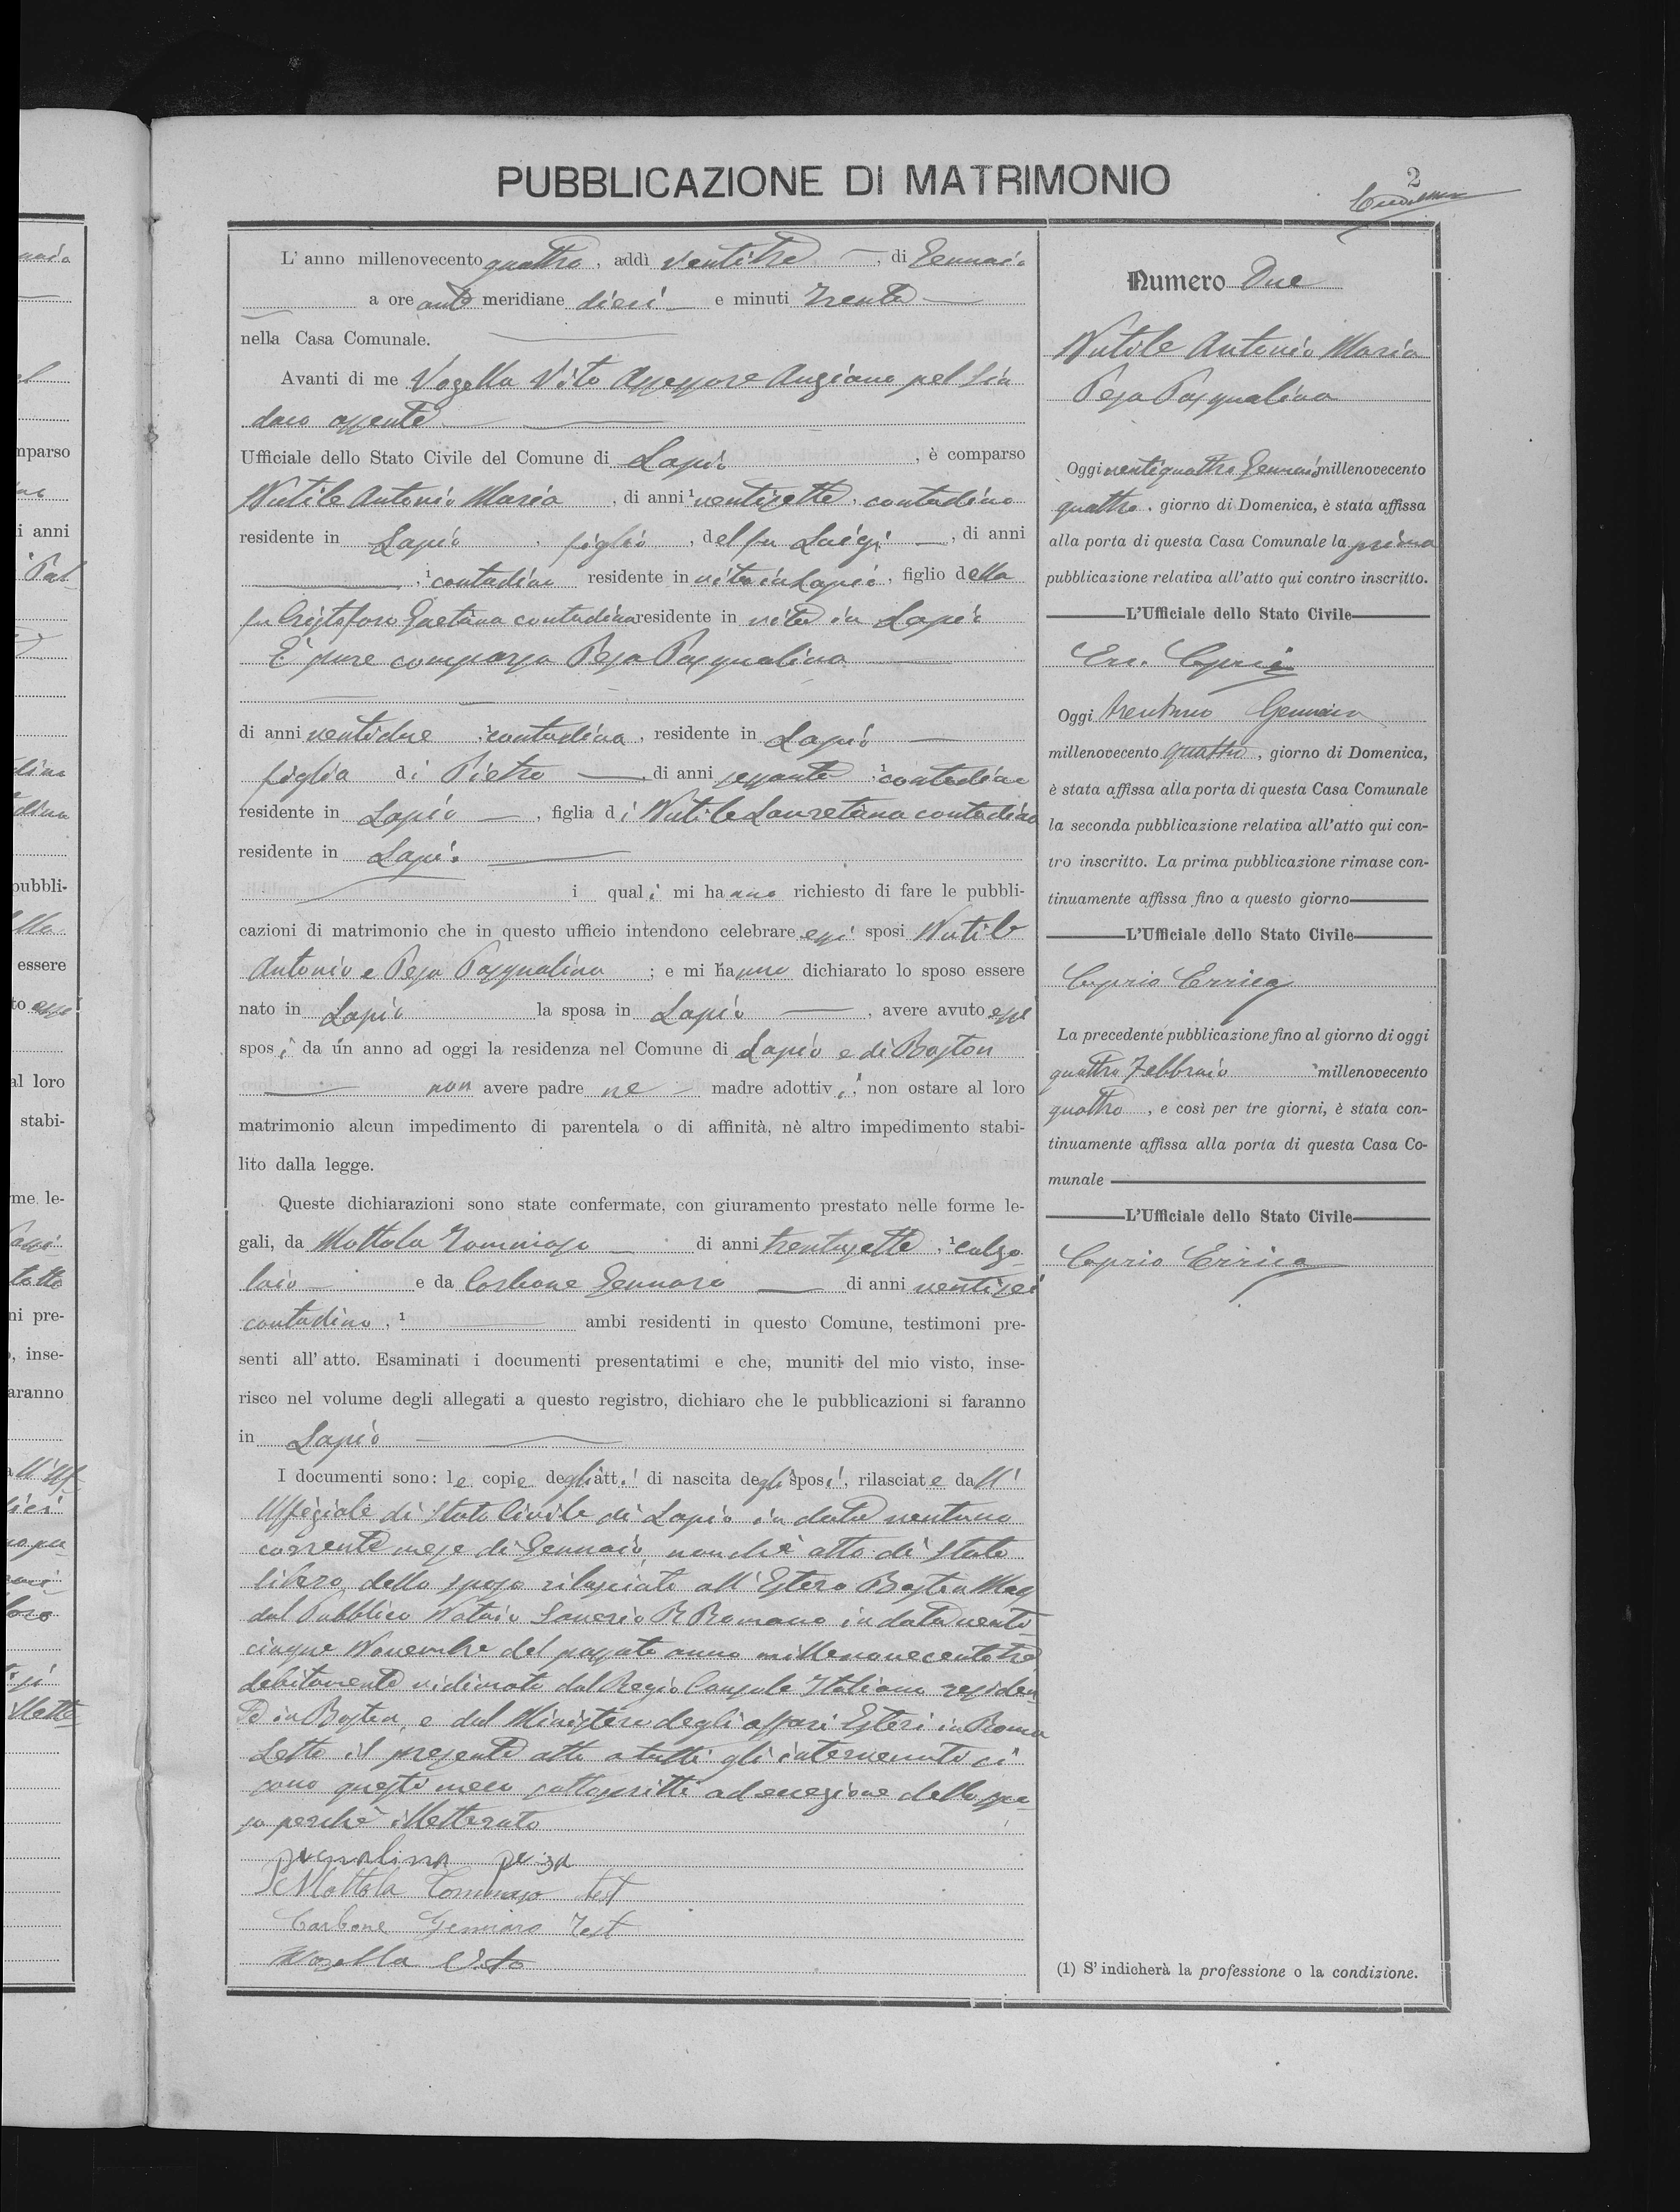 PUBBLICAZIONE DI MATRIMONIO
2
L'anno millenovecento quattro, addì ventitre, di Gennaio
a ore ante meridiane dieci e minuti trenta
nella Casa Comunale.
Avanti di me Vozella Vito Assessore Anziano pel Sin
daco assente
Ufficiale dello Stato Civile del Comune di Lapio, è comparso
Nutile Antonio Maria, di anni ¹ ventisette, contadino
residente in Lapio, figlio, del fu Luigi, di anni
, ¹ contadino residente in vita in Lapio, figlio della
fu Cristofaro Gaetana contadina residente in vita in Lapio
È pure comparsa Pesa Pasqualina
di anni ventidue, ¹ contadina, residente in Lapio
figlia di Pietro, di anni sessanta, ¹ contadino
residente in Lapio, figlia di Nutile Lauretana contadina
residente in Lapio
i quali mi hanno richiesto di fare le pubbli-
cazioni di matrimonio che in questo ufficio intendono celebrare essi sposi Nutile
Antonio e Pesa Pasqualina; e mi hanno dichiarato lo sposo essere
nato in Lapio la sposa in Lapio, avere avuto essi
sposi da un anno ad oggi la residenza nel Comune di Lapio e di Boston
non avere padre ne madre adottivi; non ostare al loro
matrimonio alcun impedimento di parentela o di affinità, nè altro impedimento stabi-
lito dalla legge.
Queste dichiarazioni sono state confermate, con giuramento prestato nelle forme le-
gali, da Mottola Tommaso di anni trentasette, ¹ calzo
laio e da Carbone Gennaro di anni ventisei
contadino, ¹ ambi residenti in questo Comune, testimoni pre-
senti all'atto. Esaminati i documenti presentatimi e che, muniti del mio visto, inse-
risco nel volume degli allegati a questo registro, dichiaro che le pubblicazioni si faranno
in Lapio
I documenti sono: le copie degli atti di nascita degli sposi, rilasciate dall'
Uffiziale di Stato Civile di Lapio in data ventuno
corrente mese di Gennaio, nonchè atto di stato
libero dello sposo rilasciato all'Estero Boston Mass
dal Pubblico Notaio Saverio R Romano in data venti
cinque Novembre del passato anno millenovecentotre
debitamente vidimato dal Regio Console Italiano residen
te in Boston, e dal Ministero degli affari Esteri in Roma
Letto il presente atto a tutti gli intervenuti si
sono questi meco sottoscritti ad eccezione dello spo
so perchè illetterato
pasqualina pesa
Mottola Tommaso test
Carbone Gennaro Test
Vozella Vito
Numero Due
Nutile Antonio Maria
Pesa Pasqualina
Oggi ventiquattro Gennaio millenovecento
quattro, giorno di Domenica, è stata affissa
alla porta di questa Casa Comunale la prima
pubblicazione relativa all'atto qui contro inscritto.
L'Ufficiale dello Stato Civile
Err. Caprio
Oggi trentuno Gennaio
millenovecento quattro, giorno di Domenica,
è stata affissa alla porta di questa Casa Comunale
la seconda pubblicazione relativa all'atto qui con-
tro inscritto. La prima pubblicazione rimase con-
tinuamente affissa fino a questo giorno
L'Ufficiale dello Stato Civile
Caprio Errico
La precedente pubblicazione fino al giorno di oggi
quattro Febbraio millenovecento
quattro, e così per tre giorni, è stata con-
tinuamente affissa alla porta di questa Casa Co-
munale
L'Ufficiale dello Stato Civile
Caprio Errico
(1) S'indicherà la professione o la condizione.